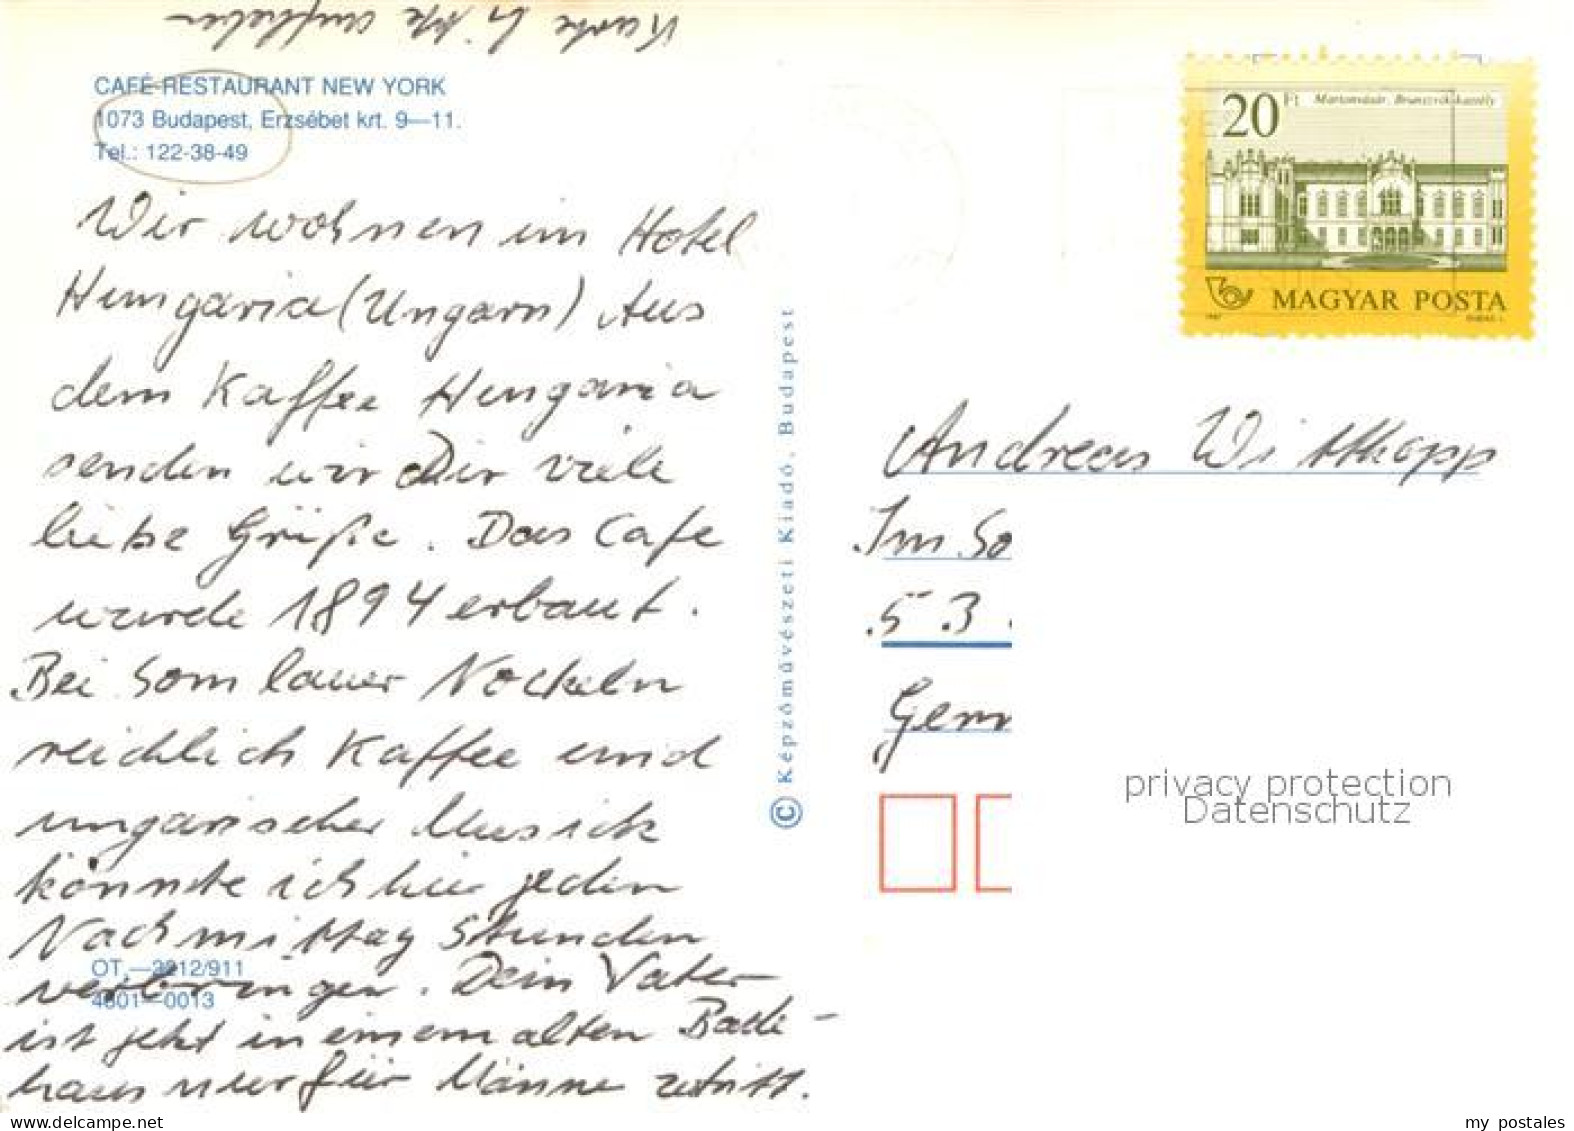 Karte bitte aufheben
CAFÉ-RESTAURANT NEW YORK
1073 Budapest, Erzsébet krt. 9—11.
Tel.: 122-38-49
Wir wohnen im Hotel
Hungaria (Ungarn) Aus
dem Kaffee Hungaria
senden wir Dir viele
liebe Grüße. Das Cafe
wurde 1894 erbaut.
Bei Somlauer Nockeln
reichlich Kaffee und
ungarischer Musick
könnte ich hier jeden
Nachmittag Stunden
verbringen. Dein Vater
ist jetzt in einem alten Bade-
haus nur für Männe zutritt.
OT.—3912/911
4801—0013
© Képzőművészeti Kiadó, Budapest
20 Ft Martonvásár, Brunszvik-kastély
MAGYAR POSTA
Andreas Wittkopp
Im So
53
Germ
privacy protection
Datenschutz
my postales